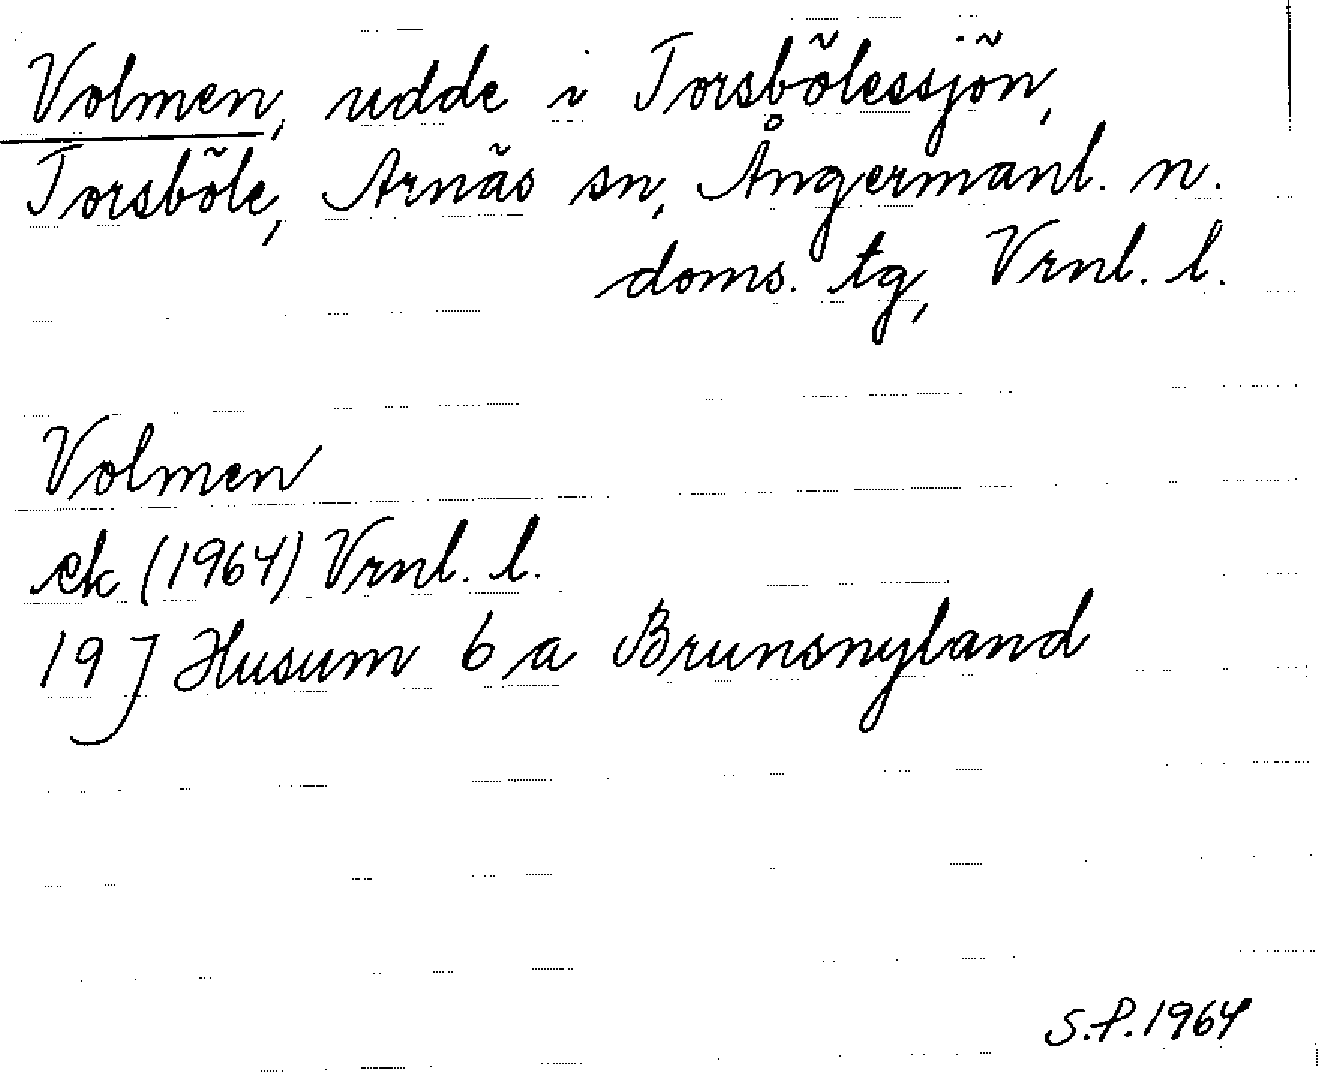 Volmen, udde i Torsbölessjön,
Torsböle, Arnäs sn, Ångermanl. n.
doms. tg, Vrnl. l.
Volmen
ek (1964) Vrnl. l.
19 J Husum 6 a Brunsnyland
S.P. 1964